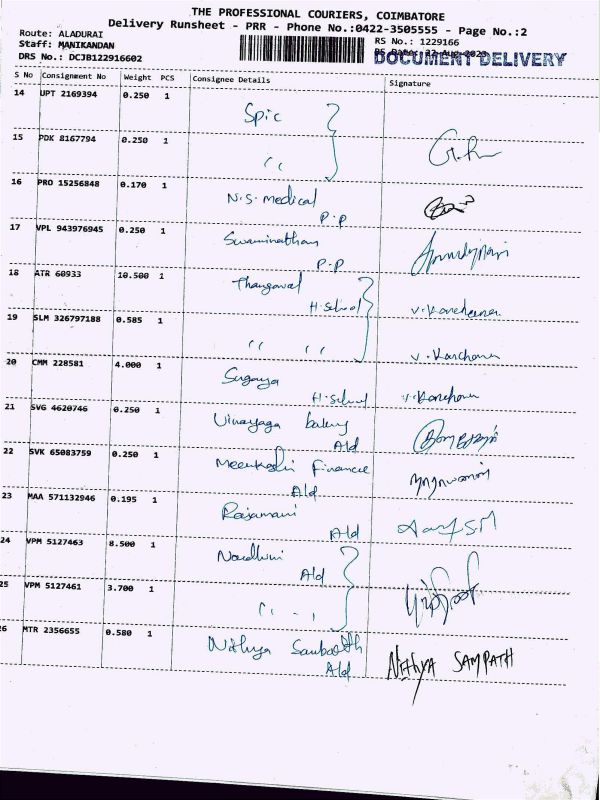 THE PROFESSIONAL COURIERS, COIMBATORE
Delivery Runsheet - PRR - Phone No.:0422-3505555 - Page No.:2
Route: ALADURAI
Staff: MANIKANDAN
DRS No.: DCJB122916602
RS No.: 1229166
DOCUMENT DELIVERY
S No Consignment No Weight PCS Consignee Details Signature
14 UPT 2169394 0.250 1 Spic
15 PDK 8167794 0.250 1 ''
16 PRO 15256848 0.170 1 N.S. medical
P.P
17 VPL 943976945 0.250 1 Swaminathan
P.P
18 ATR 60933 10.500 1 Thangavel
H.School
19 SLM 326797188 0.585 1 '' '' v. Kanchana
20 CMM 228581 4.000 1 Suganya
H.School v. Kanchana
21 SVG 4620746 0.250 1 Vinayaga bakery
Ald
22 SVK 65083759 0.250 1 Meenakshi Finance
Ald
23 MAA 571132946 0.195 1 Rajamani
Ald
24 VPM 5127463 8.500 1
Ald
25 VPM 5127461 3.700 1 '' ''
26 MTR 2356655 0.580 1 Nithya Sambath NITHYA SAMPATH
Ald